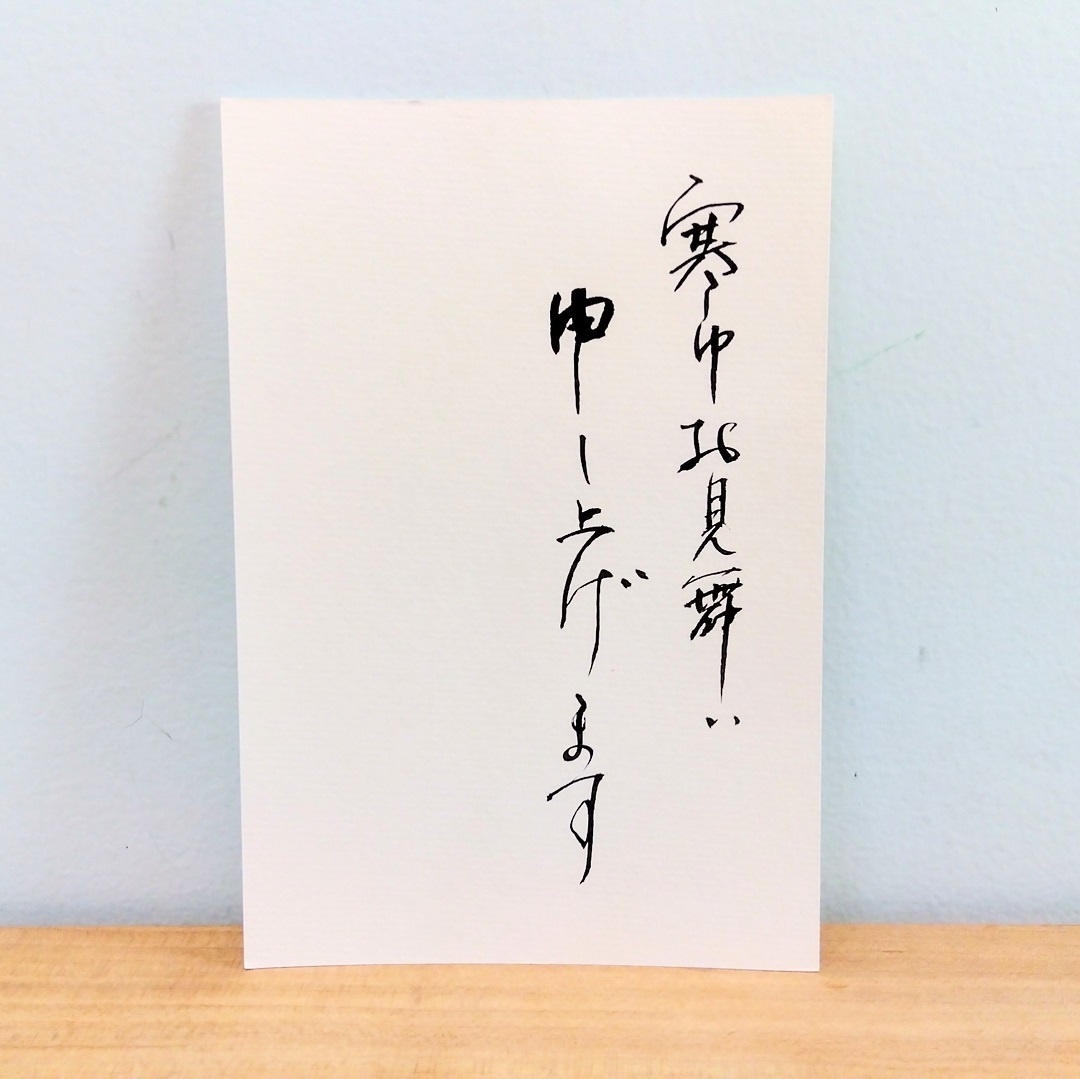 寒中お見舞い
申し上げます